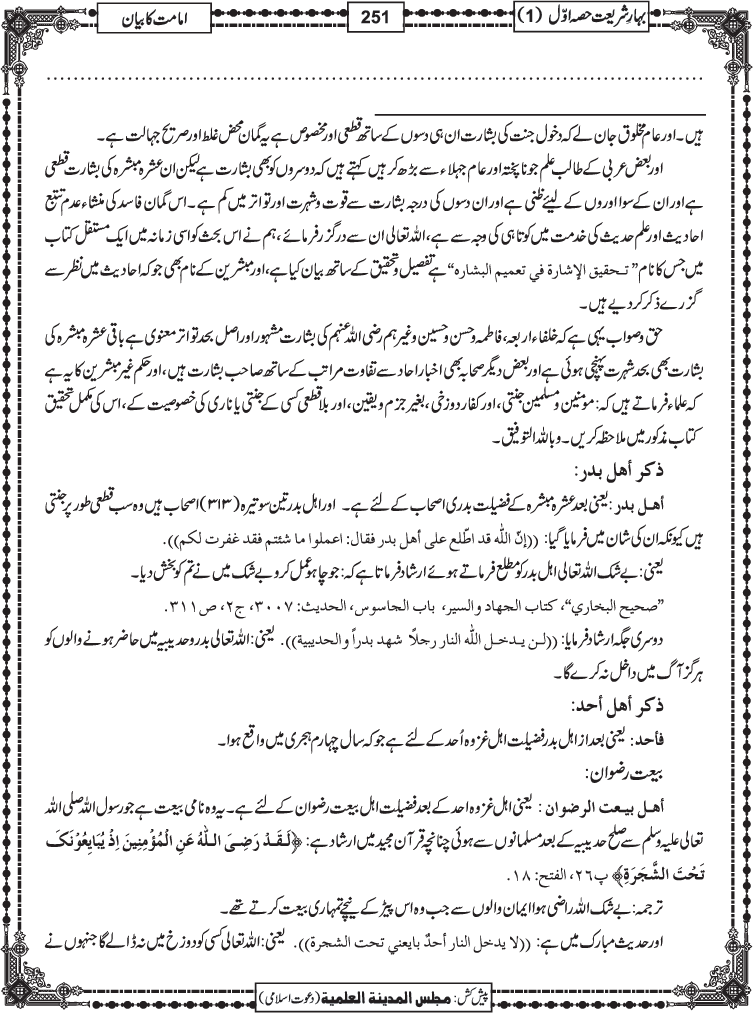 بہارِ شریعت حصہ اوّل (1)
251
امامت کا بیان
ہیں۔ اور عام مخلوق جان لے کہ دخول جنت کی بشارت ان ہی دسوں کے ساتھ قطعی اور مخصوص ہے یہ گمان محض غلط اور صریح جہالت ہے۔
اور بعض عربی کے طالب علم جو ناپختہ اور عام جہلاء سے بڑھ کر ہیں کہتے ہیں کہ دوسروں کو بھی بشارت ہے لیکن ان عشرہ مبشرہ کی بشارت قطعی
ہے اور ان کے سوا اوروں کے لیئے ظنی ہے اور ان دسوں کی درجہ بشارت سے قوت و شہرت اور تواتر میں کم ہے۔ اس گمان فاسد کی منشاء عدم تتبع
احادیث اور علم حدیث کی خدمت میں کوتاہی کی وجہ سے ہے، اللہ تعالی ان سے درگزر فرمائے، ہم نے اس بحث کو اسی زمانہ میں ایک مستقل کتاب
میں جس کا نام ”تحقيق الإشارة في تعميم البشاره“ ہے تفصیل و تحقیق کے ساتھ بیان کیا ہے، اور مبشرین کے نام بھی جو کہ احادیث میں نظر سے
گزرے ذکر کر دیے ہیں۔
حق و صواب یہی ہے کہ خلفاء اربعہ، فاطمہ وحسن وحسین وغیرہم رضی اللہ عنہم کی بشارت مشہور اور اصل بحد تواتر معنوی ہے باقی عشرہ مبشرہ کی
بشارت بھی بحد شہرت پہنچی ہوئی ہے اور بعض دیگر صحابہ بھی اخبار احاد سے تفاوت مراتب کے ساتھ صاحب بشارت ہیں، اور حکم غیر مبشرین کا یہ ہے
کہ علماء فرماتے ہیں کہ: مومنین ومسلمین جنتی، اور کفار دوزخی، بغیر جزم ویقین، اور بلا قطعی کسی کے جنتی یا ناری کی خصوصیت کے، اس کی مکمل تحقیق
کتاب مذکور میں ملاحظہ کریں۔ وباللہ التوفیق۔
ذكر أهل بدر:
أهل بدر: یعنی بعد عشرہ مبشرہ کے فضیلت بدری اصحاب کے لئے ہے۔ اور اہل بدر تین سو تیرہ (۳۱۳) اصحاب ہیں وہ سب قطعی طور پر جنتی
ہیں کیونکہ ان کی شان میں فرمایا گیا: ((إنّ اللّه قد اطّلع على أهل بدر فقال: اعملوا ما شئتم فقد غفرت لكم)).
یعنی: بے شک اللہ تعالی اہل بدر کو مطلع فرماتے ہوئے ارشاد فرماتا ہے کہ: جو چاہو عمل کرو بے شک میں نے تم کو بخش دیا۔
”صحيح البخاري“، كتاب الجهاد والسير، باب الجاسوس، الحديث: ۳۰۰۷، ج۲، ص۳۱۱.
دوسری جگہ ارشاد فرمایا: ((لن يدخل اللّه النار رجلًا شهد بدراً والحديبية)). یعنی: اللہ تعالی بدر وحدیبیہ میں حاضر ہونے والوں کو
ہرگز آگ میں داخل نہ کرے گا۔
ذكر أهل أحد:
فأحد: یعنی بعد از اہل بدر فضیلت اہل غزوہ اُحد کے لئے ہے جو کہ سال چہارم ہجری میں واقع ہوا۔
بیعت رضوان:
أهل بيعت الرضوان: یعنی اہل غزوہ احد کے بعد فضیلت اہل بیعت رضوان کے لئے ہے۔ یہ وہ نامی بیعت ہے جو رسول اللہ صلی اللہ
تعالی علیہ وسلم سے صلح حدیبیہ کے بعد مسلمانوں سے ہوئی چنانچہ قرآن مجید میں ارشاد ہے: ﴿لَقَدْ رَضِيَ اللّٰهُ عَنِ الْمُؤْمِنِينَ اِذْ يُبَايِعُوْنَكَ
تَحْتَ الشَّجَرَةِ﴾ پ۲۶، الفتح: ۱۸.
ترجمہ: بے شک اللہ راضی ہوا ایمان والوں سے جب وہ اس پیڑ کے نیچے تمہاری بیعت کرتے تھے۔
اور حدیث مبارک میں ہے: ((لا يدخل النار أحدٌ بايعني تحت الشجرة)). یعنی: اللہ تعالی کسی کو دوزخ میں نہ ڈالے گا جنہوں نے
پیش کش: مجلس المدينة العلمية (دعوت اسلامی)